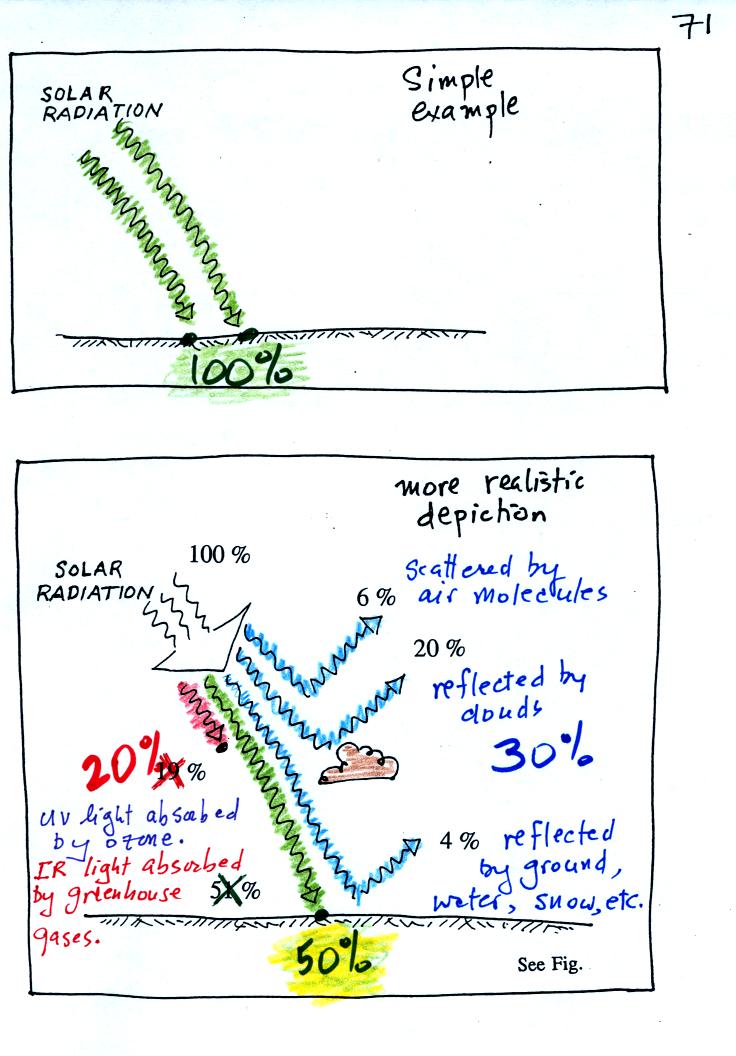 71
Simple
example
SOLAR
RADIATION
100%
more realistic
depiction
100 %
SOLAR
RADIATION
scattered by
air molecules
6 %
20 %
reflected by
clouds
30%
20%
19 %
UV light absorbed
by ozone.
IR light absorbed
by greenhouse
gases.
51 %
4 %
reflected
by ground,
water, snow, etc.
50%
See Fig.